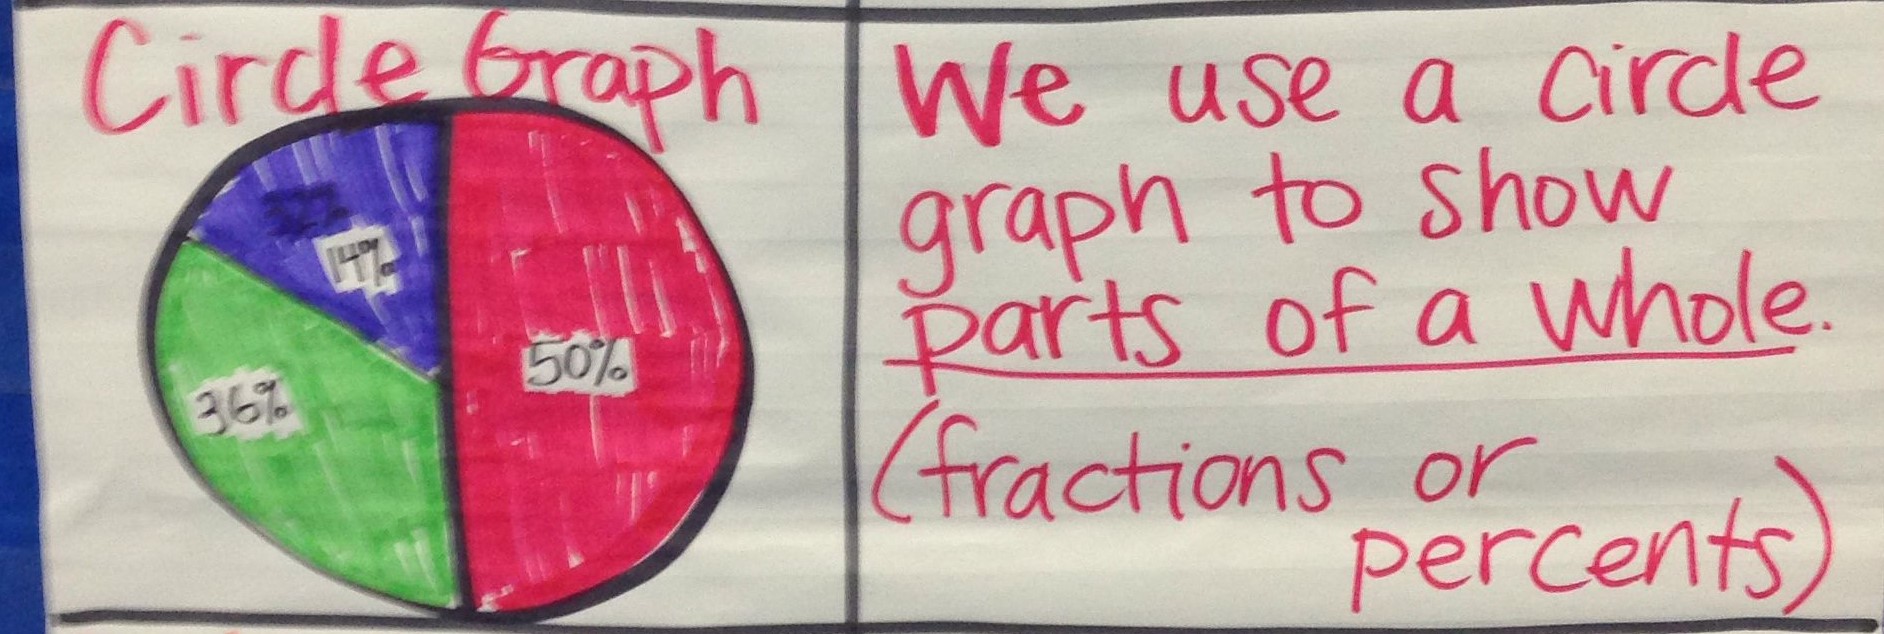 Circle Graph
32%
14%
50%
36%
We use a circle
graph to show
parts of a whole.
(fractions or
percents)